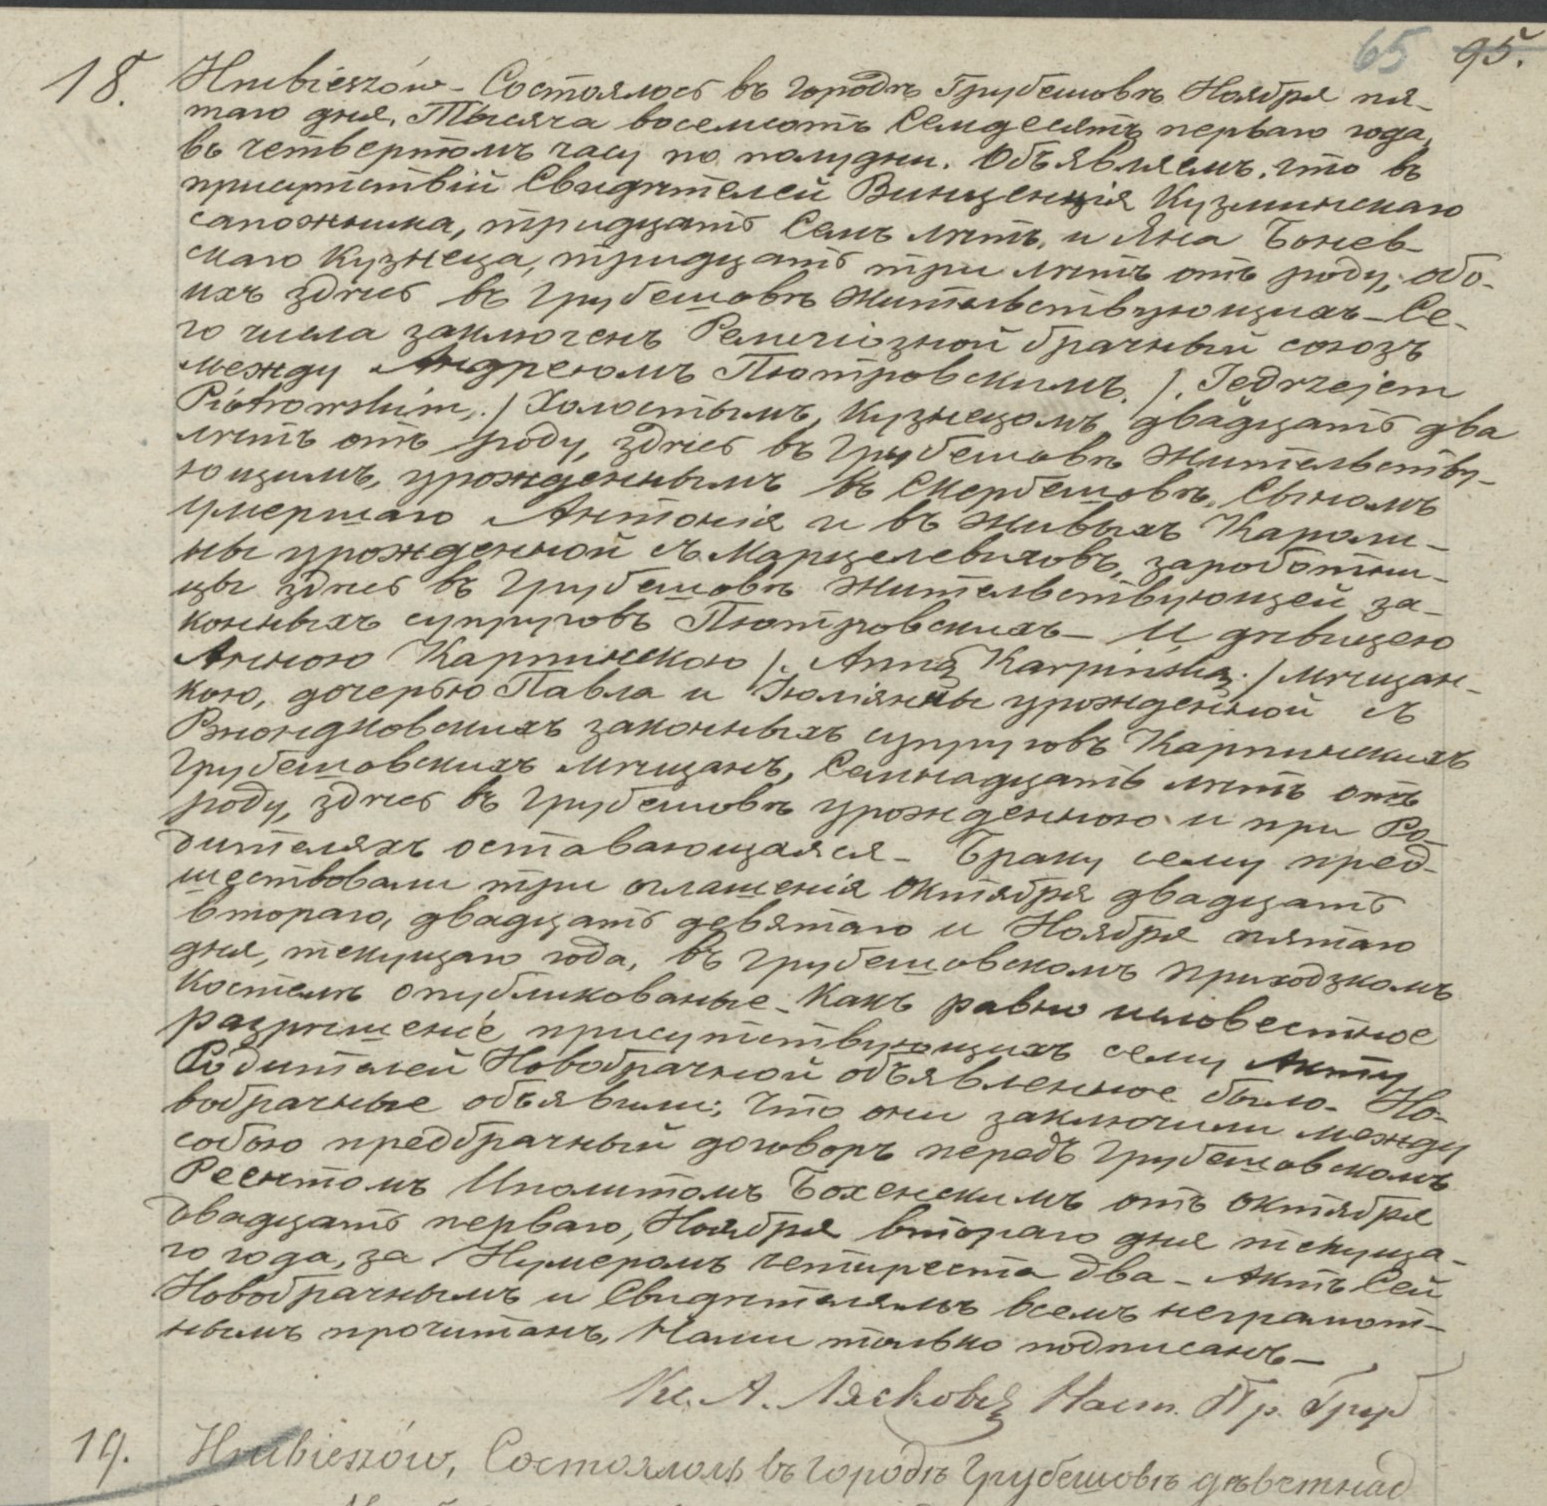 65 95.
18. Hrubieszów - Состоялось въ городѣ Грубешовѣ Ноября пя-
таго дня, Тысяча восемсотъ Семдесятъ перваго года,
въ четвертомъ часу по полудни. Объявляемъ, что въ
присутствіи Свидѣтелей Винценція Кузминскаго
сапожника, тридцать Семъ лѣтъ, и Яна Бонев-
скаго Кузнеца, тридцать три лѣтъ отъ роду, обо-
ихъ здѣсь въ Грубешовѣ жительствующихъ - Се-
го числа заключенъ Религіозной брачный союзъ
между Андреюмъ Піотровскимъ ./. Jędrzejem
Piotrowskim, ./ Холостымъ, Кузнецомъ двадцать два
лѣтъ отъ роду, здѣсь въ Грубешовѣ Жительству-
ющимъ, урожденнымъ въ Скербешовѣ, Сыномъ
умершаго Антонія и въ живыхъ Кароли-
ны урожденной съ Марцелевичовъ, заработни-
цы здѣсь въ Грубешовѣ жительствующей за-
конныхъ супруговъ Піотровскихъ - И дѣвицею
Анною Карпинскою /. Anną Karpińską ./ мѣщан-
кою, дочерью Павла и Юліянны урожденной съ
законныхъ супруговъ Карпинскихъ
Грубешовскихъ мѣщанъ, Семнадцать лѣтъ отъ
роду, здѣсь въ Грубешовѣ урожденною и при Ро-
дителяхъ оставающаяся - Браку сему пред-
шествовали три оглашенія Октября двадцать
втораго, двадцать девятаго и Ноября пятаго
дня, текущаго года, въ Грубешовскомъ приходзкомъ
Костелѣ опубликованые - Какъ равно словестное
разрѣшеніе присутствующихъ сему Акту
Родителей Новобрачной объявленное было - Но-
вобрачные объявили; Что они заключили между
собою предбрачный договоръ передъ Грубешовскомъ
Реентомъ Иполитомъ Бохенскимъ отъ Октября
двадцать перваго, Ноября втораго дня текуща-
го года, за Нумеромъ четыреста два - Актъ Сей
Новобрачнымъ и Свидѣтелямъ всемъ неграмот-
нымъ прочитанъ, Нами только подписанъ -
Кс. А. Насm. Пр. Груб
19. Hrubieszów, Состоялось въ городѣ Грубешовѣ дѣветнад